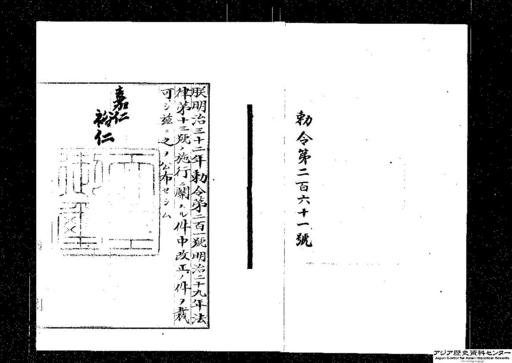 勅令第二百六十一號
朕明治三十二年勅令第二百一號明治二十九年法
律第十三號施行ニ關スル件中改正ノ件ヲ裁
可シ茲ニ之ヲ公布セシム
嘉仁
裕仁
アジア歴史資料センター
Japan Center for Asian Historical Records